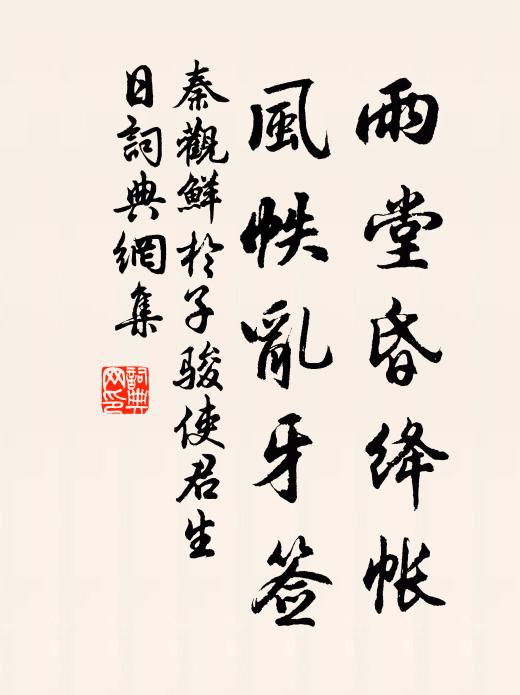 雨堂昏绛帐
風帙亂牙签
秦觀鮮於子駿使君生
日詞典網集
詞典
网印